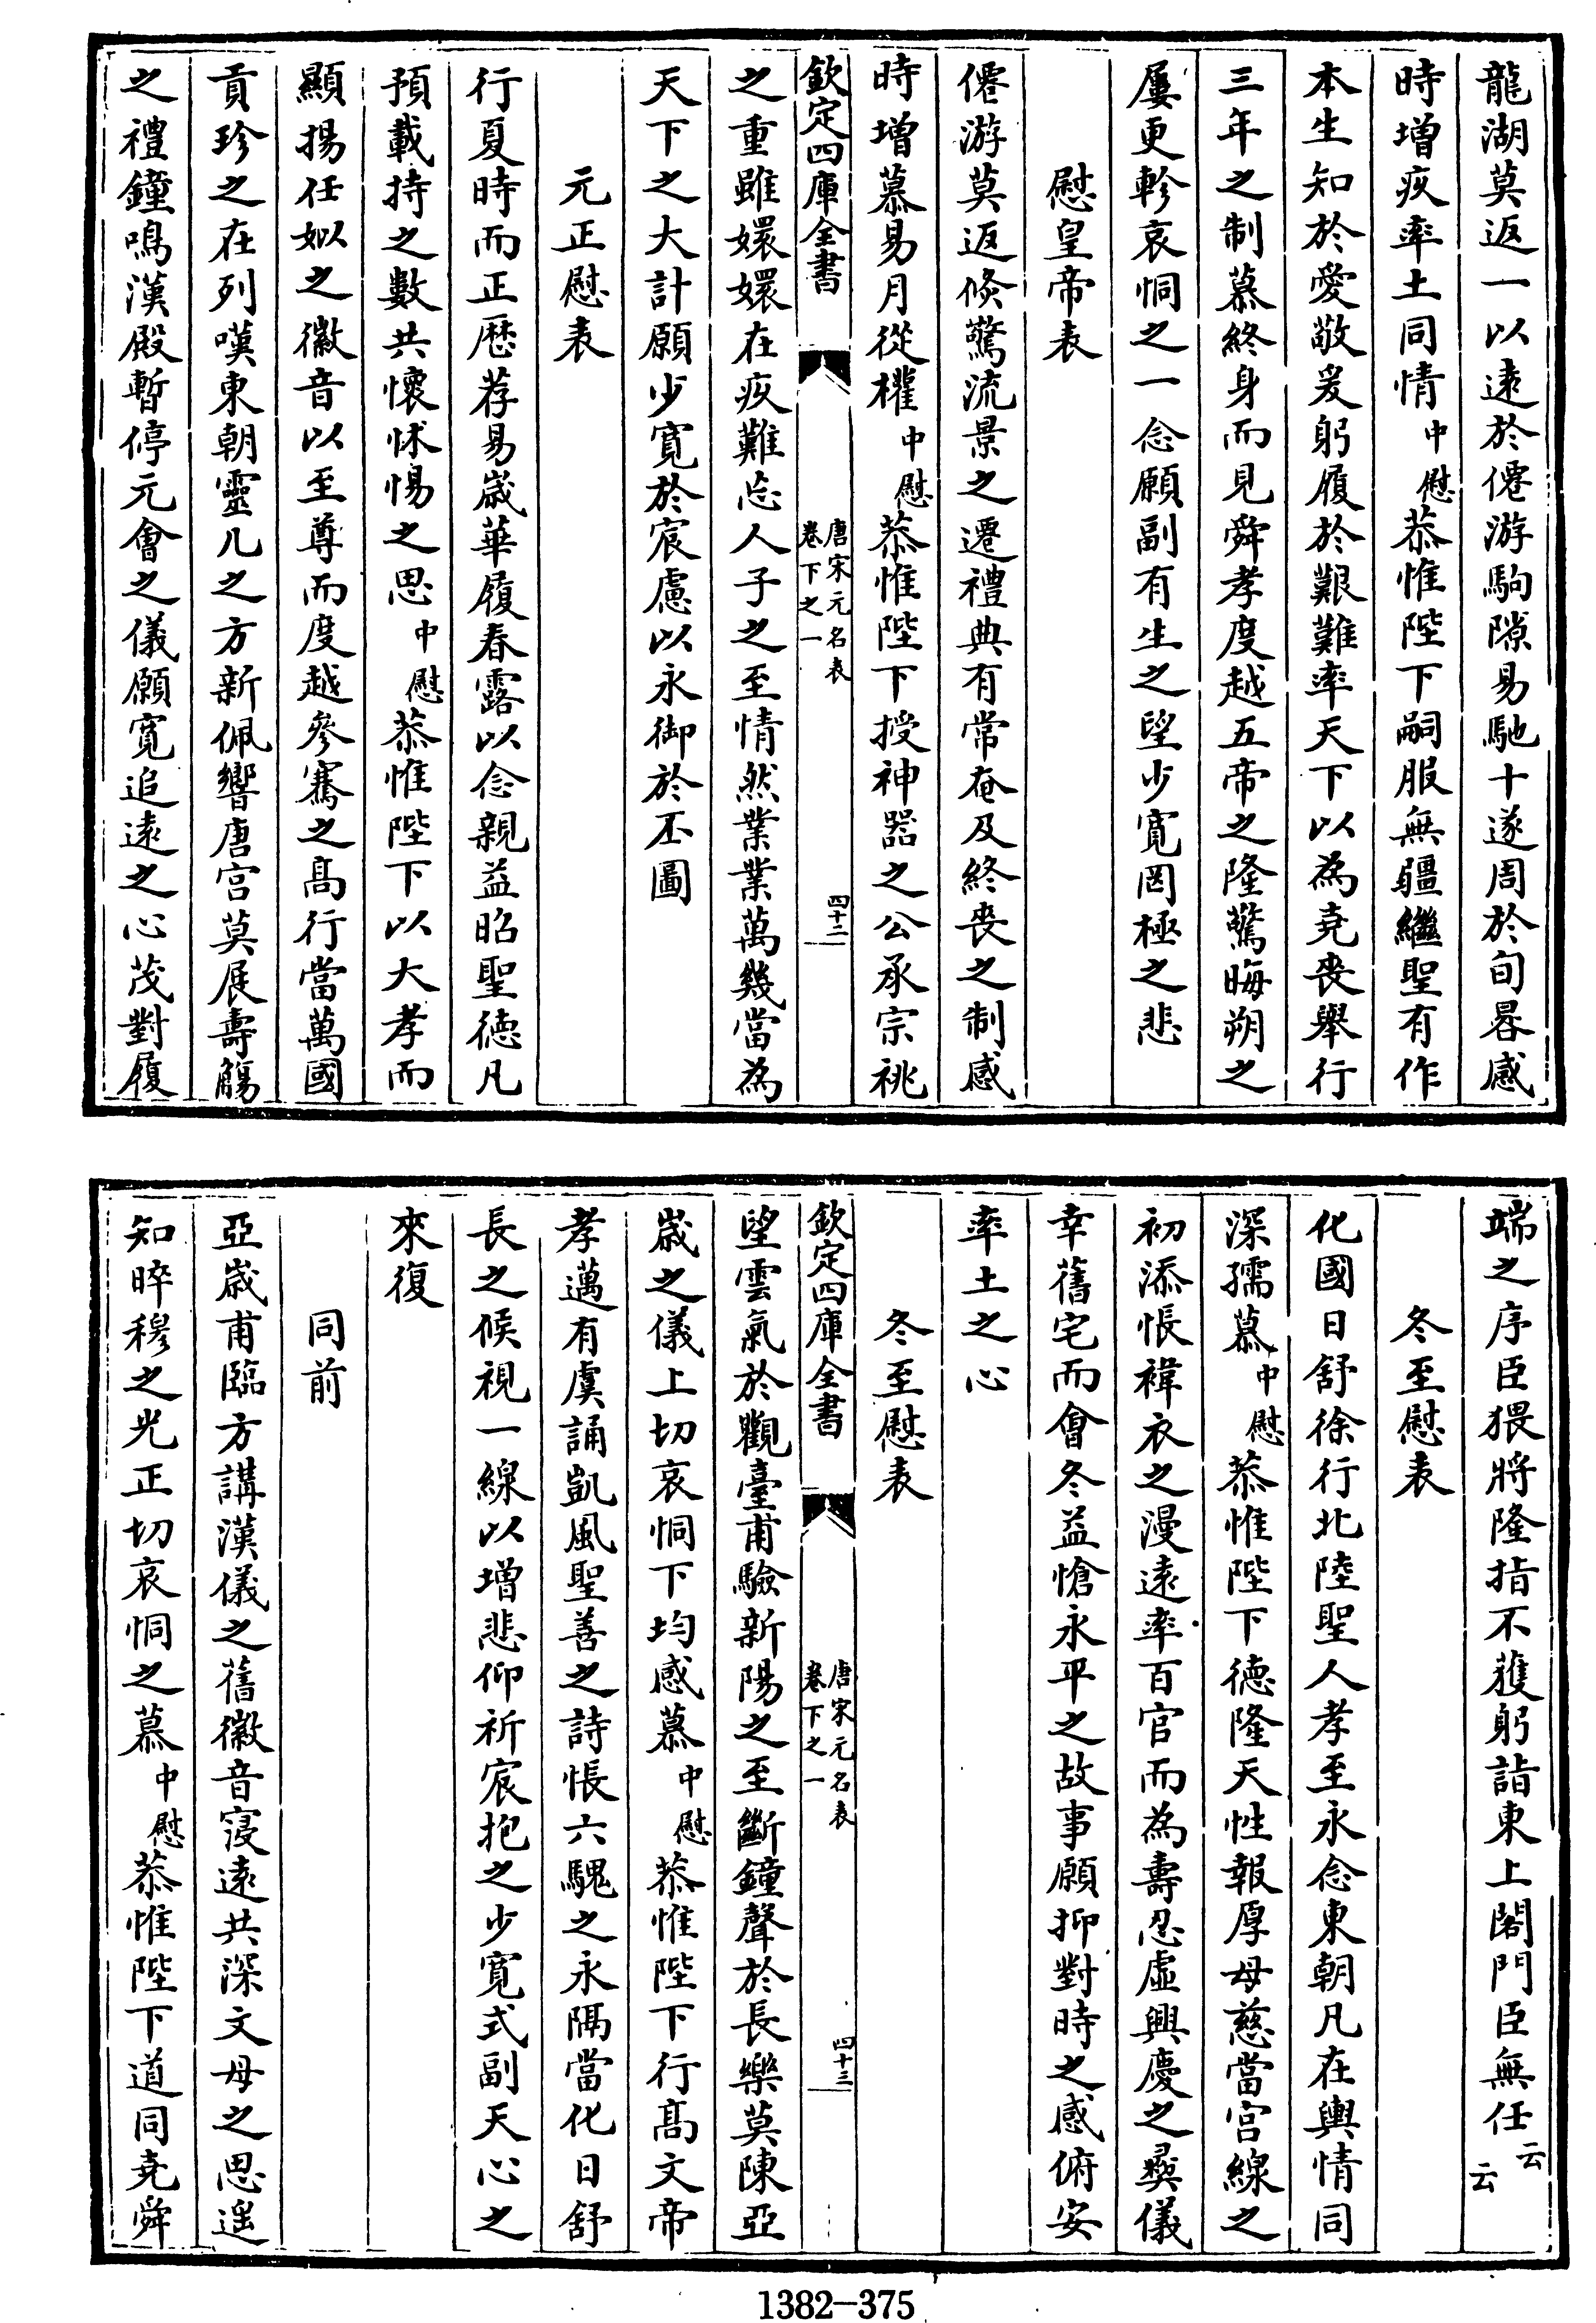 龍湖莫返一以遠於僊游駒隙易馳十遂周於旬晷感
時增疚率土同情中慰恭惟陛下嗣服無疆繼聖有作
本生知於愛敬爰躬履於艱難率天下以為堯喪舉行
三年之制慕終身而見舜孝度越五帝之隆驚晦朔之
屢更軫哀恫之一念願副有生之望少寛罔極之悲
慰皇帝表
僊游莫返倏驚流景之遷禮典有常奄及終喪之制感
時增慕易月從權中慰恭惟陛下授神器之公承宗祧
欽定四庫全書
唐宋元名表
卷下之一
四十二
之重雖嬛嬛在疚難忘人子之至情然業業萬幾當為
天下之大計願少寛於宸慮以永御於丕圖
元正慰表
行夏時而正厯荐易歲華履春露以念親益昭聖德凡
預載持之數共懷怵惕之思中慰恭惟陛下以大孝而
顯揚任姒之徽音以至尊而度越參騫之高行當萬國
貢珍之在列嘆東朝靈几之方新佩響唐宮莫展壽觴
之禮鐘鳴漢殿暫停元會之儀願寛追遠之心茂對履
端之序臣猥將隆指不獲躬詣東上閤門臣無任云云
冬至慰表
化國日舒徐行北陸聖人孝至永念東朝凡在輿情同
深孺慕中慰恭惟陛下德隆天性報厚母慈當宮線之
初添悵褘衣之漫遠率百官而為壽忍虛興慶之彝儀
幸舊宅而會冬益愴永平之故事願抑對時之感俯安
率土之心
冬至慰表
欽定四庫全書
唐宋元名表
卷下之一
四十三
望雲氣於觀臺甫驗新陽之至斷鐘聲於長樂莫陳亞
歲之儀上切哀恫下均感慕中慰恭惟陛下行高文帝
孝邁有虞誦凱風聖善之詩悵六騩之永隔當化日舒
長之候視一線以增悲仰祈宸抱之少寛式副天心之
來復
同前
亞歲甫臨方講漢儀之舊徽音寖遠共深文母之思遥
知晬穆之光正切哀恫之慕中慰恭惟陛下道同堯舜
1382-375